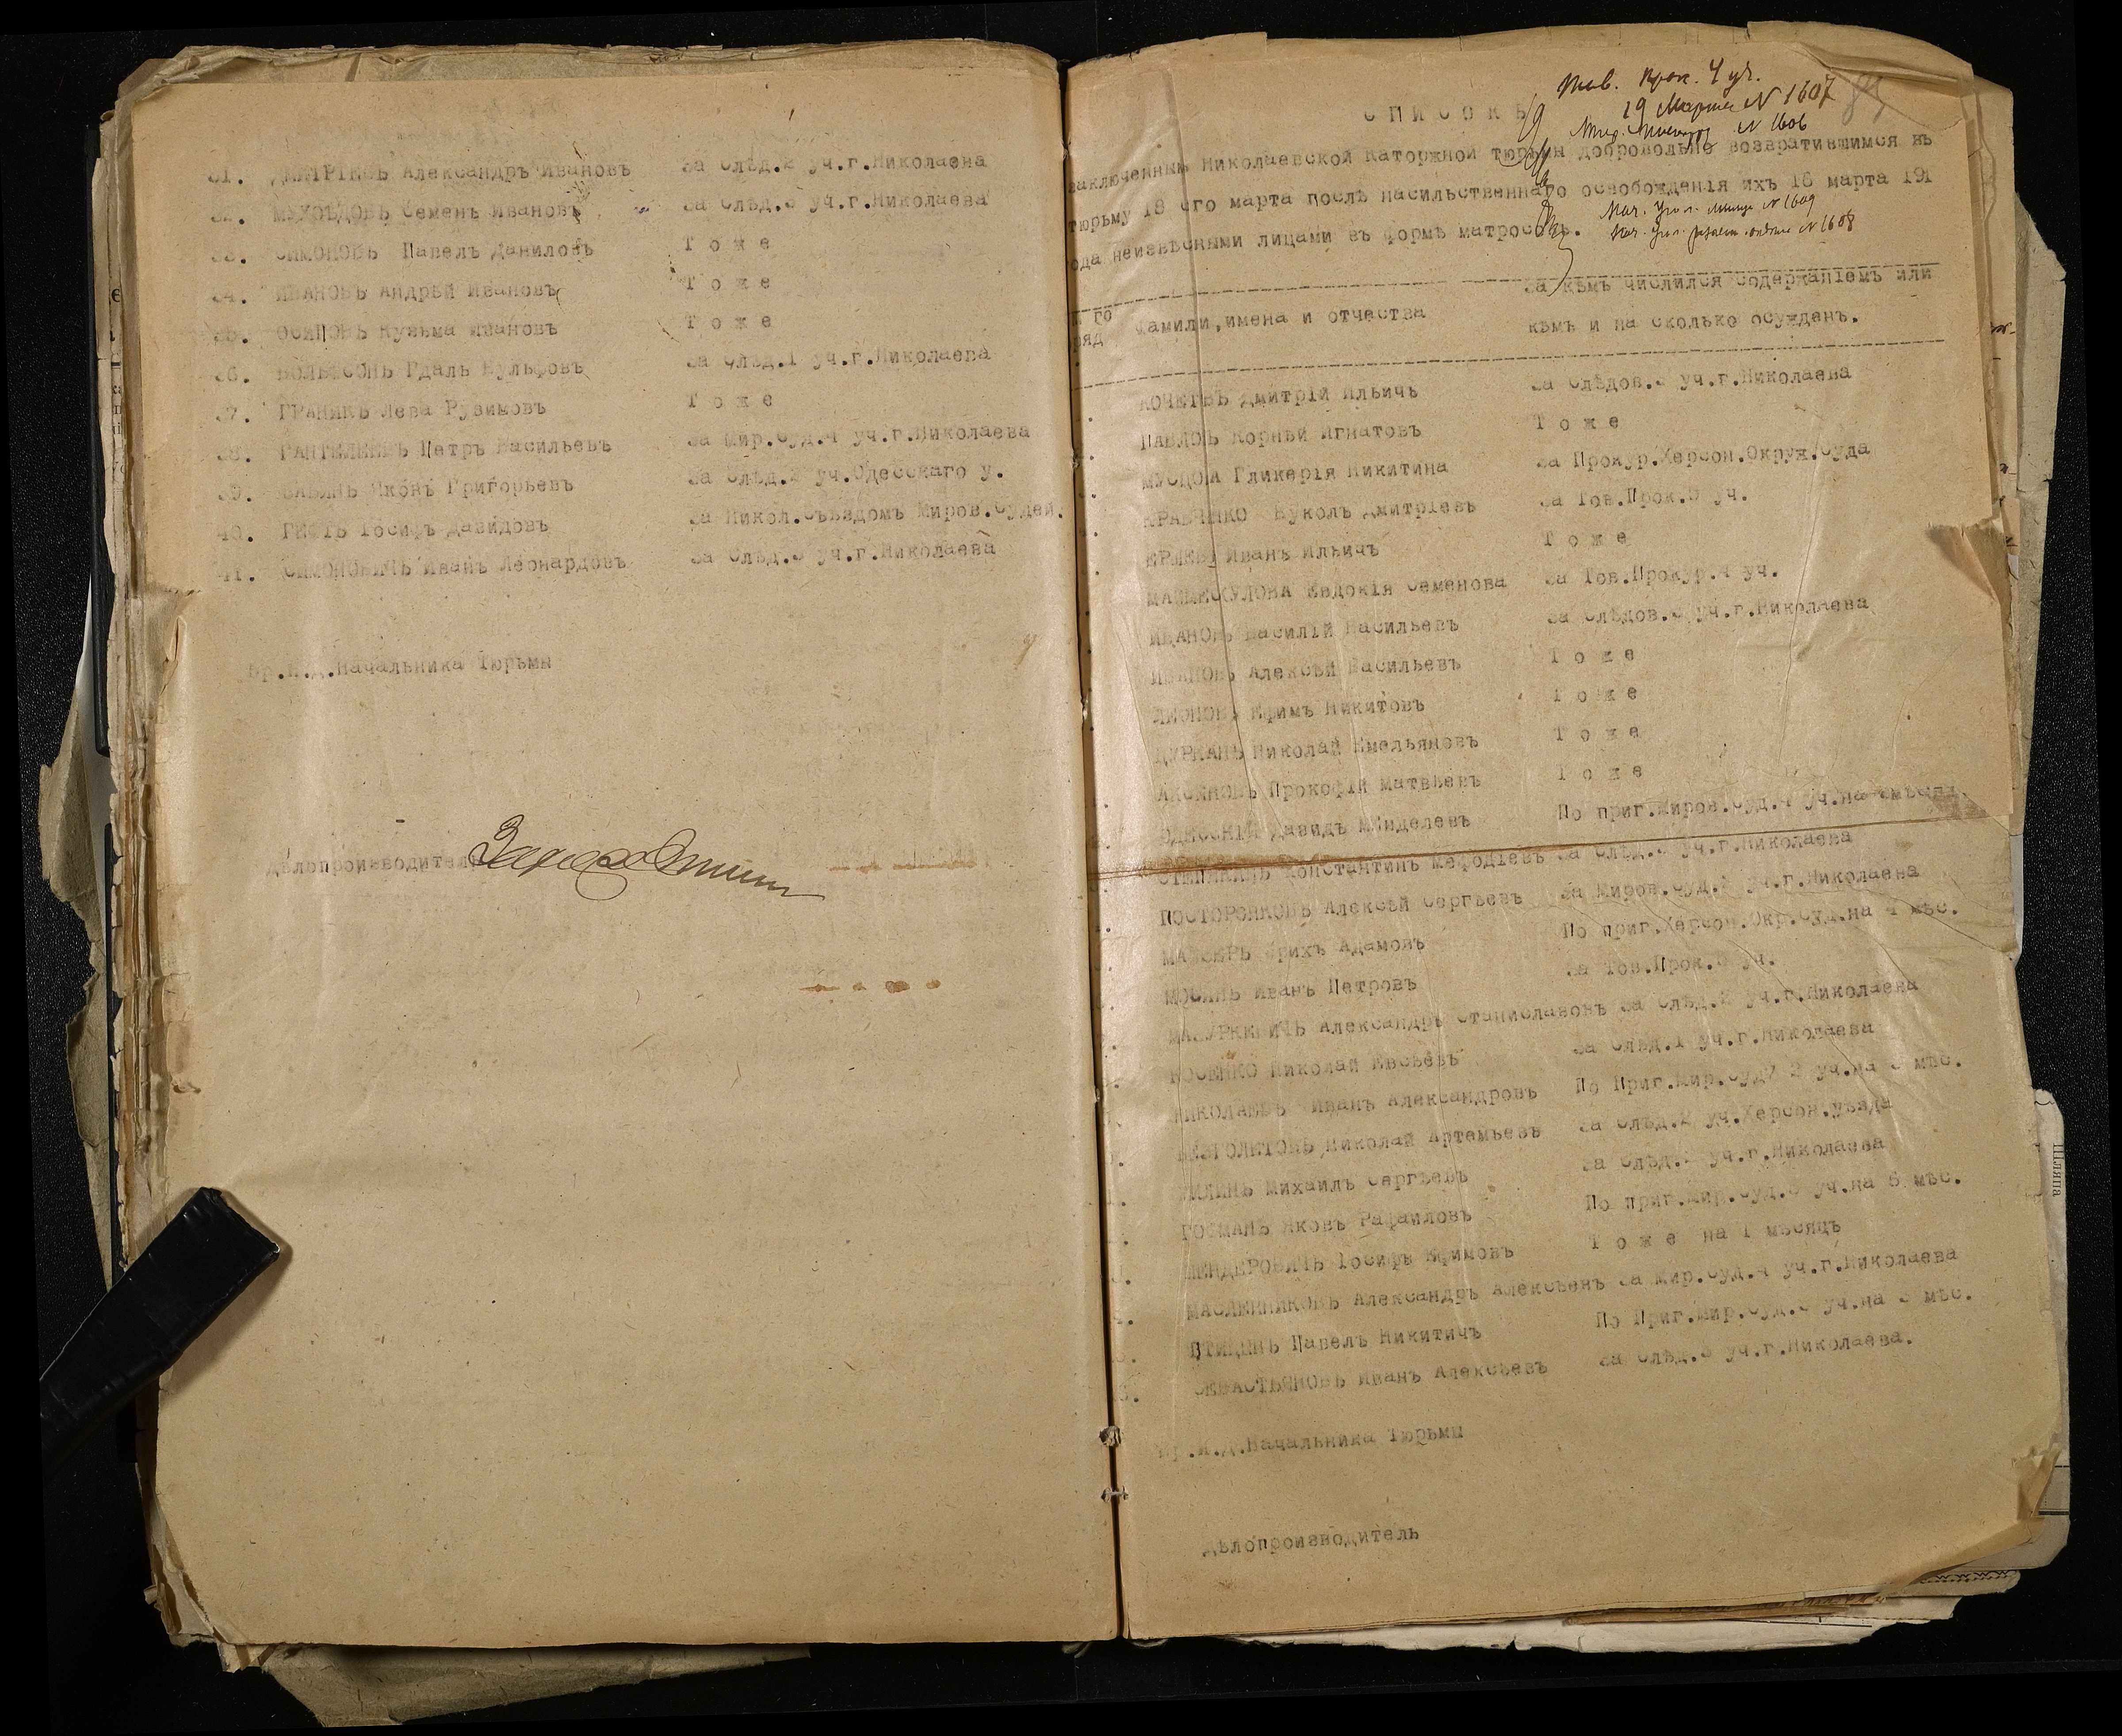 31. ДМИТРІЕВЪ Александръ Ивановъ За Слѣд.2 уч.г.Николаева
32. Семенъ Ивановъ За Слѣд.3 уч.г.Николаева
33. СИМОНОВЪ Павелъ Даниловъ Т о ж е
34. ИВАНОВЪ Андрей Ивановъ Т о ж е
35. ОСИПОВЪ Кузьма Ивановъ Т о ж е
36. ВОЛЬФСОНЪ Гдаль Вульфовъ За Слѣд.1 уч.г.Николаева
37. ГРАНИКЪ Лева Рувимовъ Т о ж е
38. ПАНТЕЛЕЕВЪ Петръ Васильевъ За Мир.Суд.4 уч.г.Николаева
39. Яковъ Григорьевъ За Слѣд.2 уч.Одесскаго у.
40. Іосифъ Давидовъ За Никол.Съѣздомъ Миров.Судей.
41. СИМОНОВИЧЪ Иванъ Леонардовъ За Слѣд.3 уч.г.Николаева
Вр.И.Д.Начальника Тюрьмы
Дѣлопроизводитель
Тов. Прок. 4 уч.
19 Марта N 1607
N 1606
С П И С О К Ъ
заключеннымъ Николаевской Каторжной тюрьмы добровольно возвратившимся въ
тюрьму 18 сго марта послѣ насильственнаго освобожденія ихъ 18 марта 191
ода неизвѣсными лицами въ формѣ матросовъ.
N 1609
N 1608
За кѣмъ числился содержаніемъ или
Фамили,имена и отчества кѣмъ и на сколько осужденъ.
ряд
КОЧЕТОВЪ Дмитрій Ильичъ За Слѣдов.3 уч.г.Николаева
ПАВЛОВЪ Корнѣй Игнатовъ Т о ж е
Гликерія Никитина За Прокур.Херсон.Окруж.Суда
КРАВЧЕНКО Вуколъ Дмитріевъ За Тов.Прок.5 уч.
Иванъ Ильичъ Т о ж е
Евдокія Семенова За Тов.Прокур.4 уч.
ИВАНОВЪ Василій Васильевъ За Слѣдов.3 уч.г.Николаева
ИВАНОВЪ Алексѣй Васильевъ Т о ж е
Ефимъ Никитовъ Т о ж е
ДУРКАНЪ Николай Емельяновъ Т о ж е
АКСЕНОВЪ Прокофій Матвѣевъ Т о ж е
ОДЕССКІЙ Давидъ Менделевъ По приг.Миров.Суд.4 уч.на
Константинъ Мефодіевъ За Слѣд.3 уч.г.Николаева
ПОСТОРОНКОВЪ Алексѣй Сергѣевъ За Миров.Суд. уч.г.Николаева
Эрихъ Адамовъ По приг.Херсон.Окр.Суд.на 4 мѣс.
МОСИНЪ Иванъ Петровъ За Тов.Прок.5 уч.
МАЗУРКЕВИЧЪ Александръ Станиславовъ За Слѣд.2 уч.г.Николаева
Николай Евсѣевъ За Слѣд.1 уч.г.Николаева
НИКОЛАЕВЪ Иванъ Александровъ По Приг.Мир.Суду 2 уч.на 3 мѣс.
Николай Артемьевъ За Слѣд.2 уч.Херсон.уѣзда
Михаилъ Сергѣевъ За Слѣд. уч.г.Николаева
ГОФМАНЪ Яковъ Рафаиловъ По приг.Мир.Суд.3 уч.на 6 мѣс.
ШЕНДЕРОВИЧЪ Іосифъ Ефимовъ Т о ж е на 1 мѣсяцъ
МАСЛЕННИКОВЪ Александръ Алексѣевъ За Мир.Суд.4 уч.г.Николаева
ПТИЦЫНЪ Павелъ Никитичъ По Приг.Мир.Суд.3 уч.на 3 мѣс.
СЕВАСТЬЯНОВЪ Иванъ Алексѣевъ За Слѣд.3 уч.г.Николаева.
Вр.И.Д.Начальника Тюрьмы
Дѣлопроизводитель
Шляпа